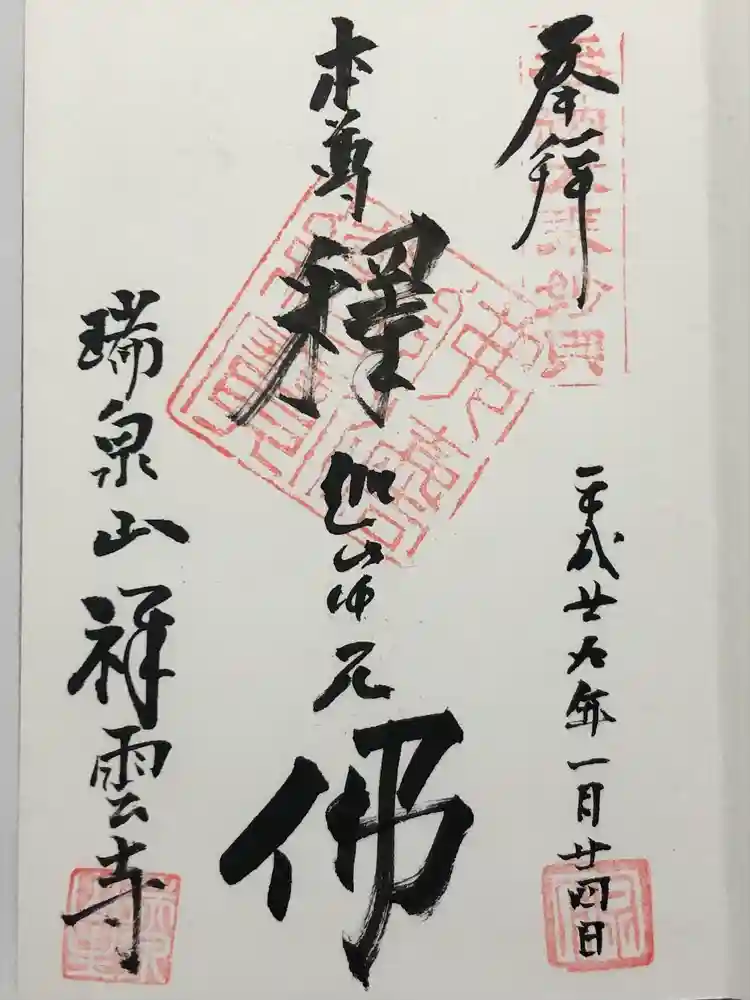 奉拝
平成廿九年一月廿四日
本尊
釋迦牟尼
佛
瑞泉山祥雲寺